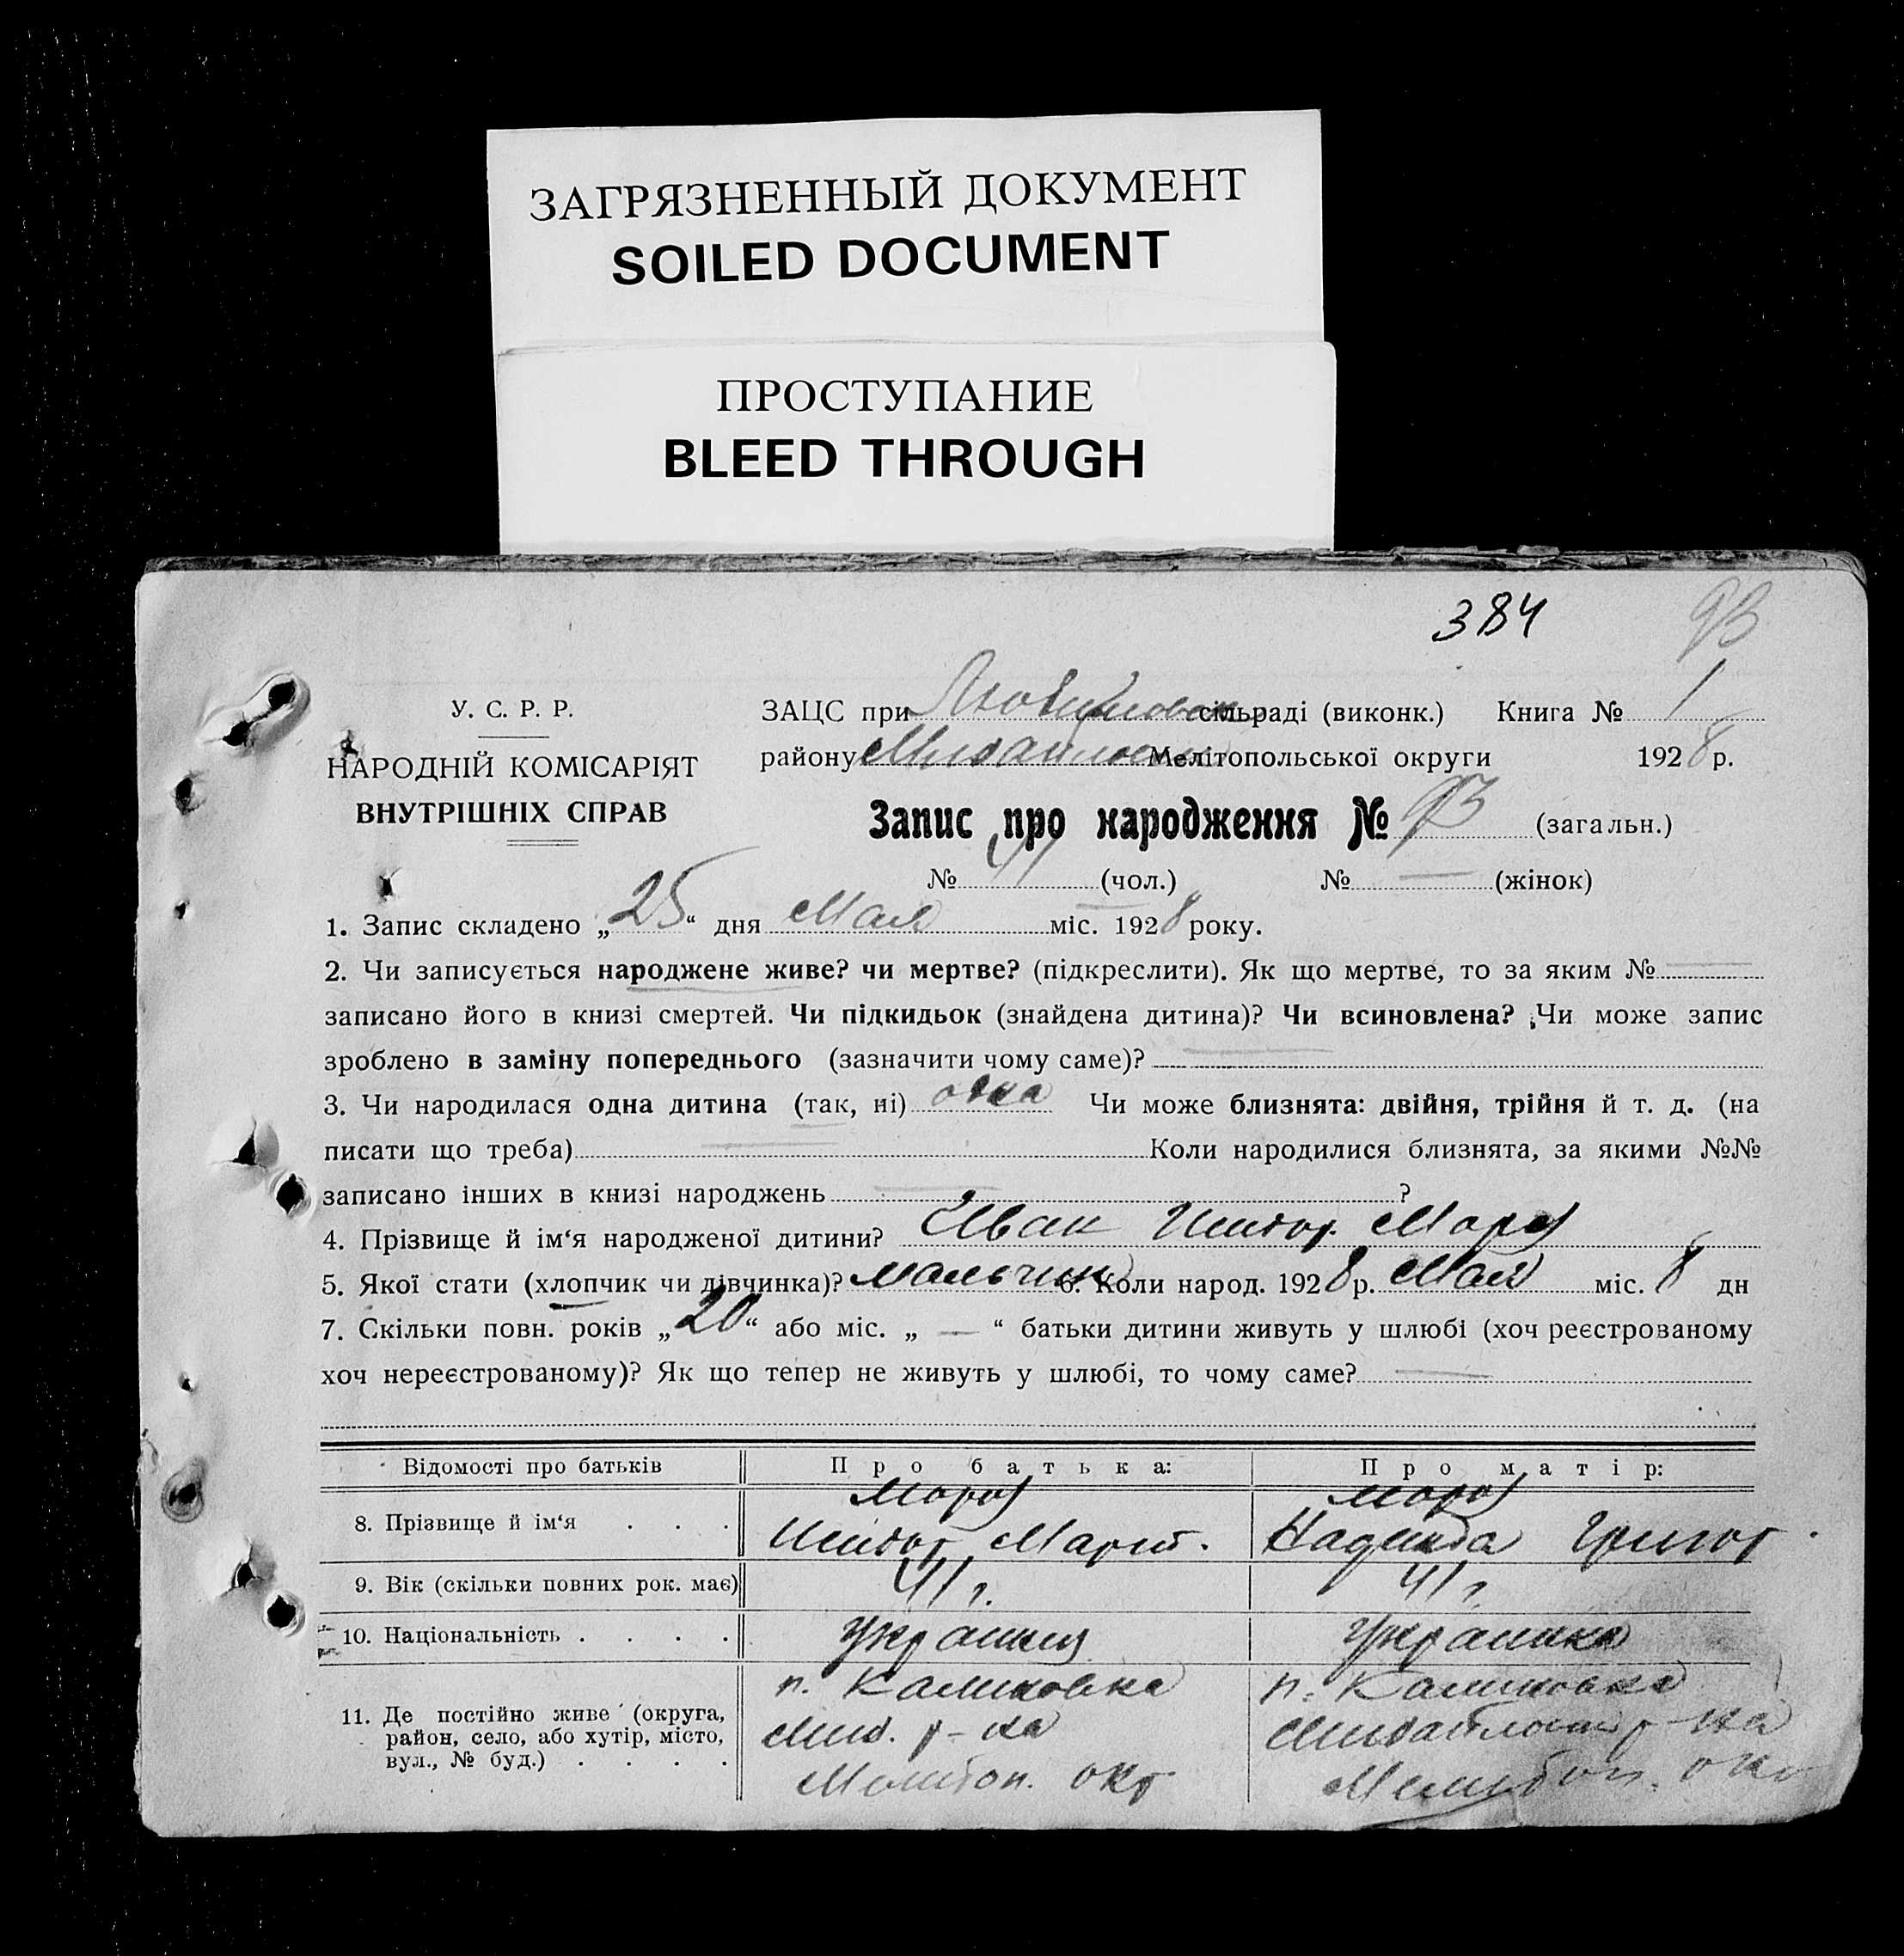 ЗАГРЯЗНЕННЫЙ ДОКУМЕНТ
SOILED DOCUMENT
ПРОСТУПАНИЕ
BLEED THROUGH
384 93
У. С. Р. Р.
НАРОДНІЙ КОМІСАРІЯТ
ВНУТРІШНІХ СПРАВ
ЗАЦС при сільраді (виконк.) Книга № 1
району Мелітопольської округи 1928 р.
Запис про народження № 93 (загальн.)
№ 41 (чол.) № — (жінок)
1. Запис складено „25“ дня Мая міс. 1928 року.
2. Чи записується народжене живе? чи мертве? (підкреслити). Як що мертве, то за яким № —
записано його в книзі смертей. Чи підкидьок (знайдена дитина)? Чи всиновлена? Чи може запис
зроблено в заміну попереднього (зазначити чому саме)? —
3. Чи народилася одна дитина (так, ні) одна Чи може близнята: двійня, трійня й т. д. (на
писати що треба) — Коли народилися близнята, за якими №№
записано інших в книзі народжень — ?
4. Прізвище й ім‘я народженої дитини? Иван Мороз
5. Якої стати (хлопчик чи дівчинка)? мальчик 6. Коли народ. 1928 р. Мая міс. 8 дн
7. Скільки повн. років „20“ або міс. „ — “ батьки дитини живуть у шлюбі (хоч реєстрованому
хоч нереєстрованому)? Як що тепер не живуть у шлюбі, то чому саме? —
Відомості про батьків Про батька: Про матір:
Мороз Мороз
8. Прізвище й ім‘я . . . Надежда Григор.
9. Вік (скільки повних рок. має) 41 г. 41 г.
10. Національність . . . . украинец украинка
п. Калиновка п. Калиновка
11. Де постійно живе (округа,
район, село, або хутір, місто, Мих. р-на Михайловск р-на
вул., № буд.) . . . . Мелитоп. окр Мелитоп. окр